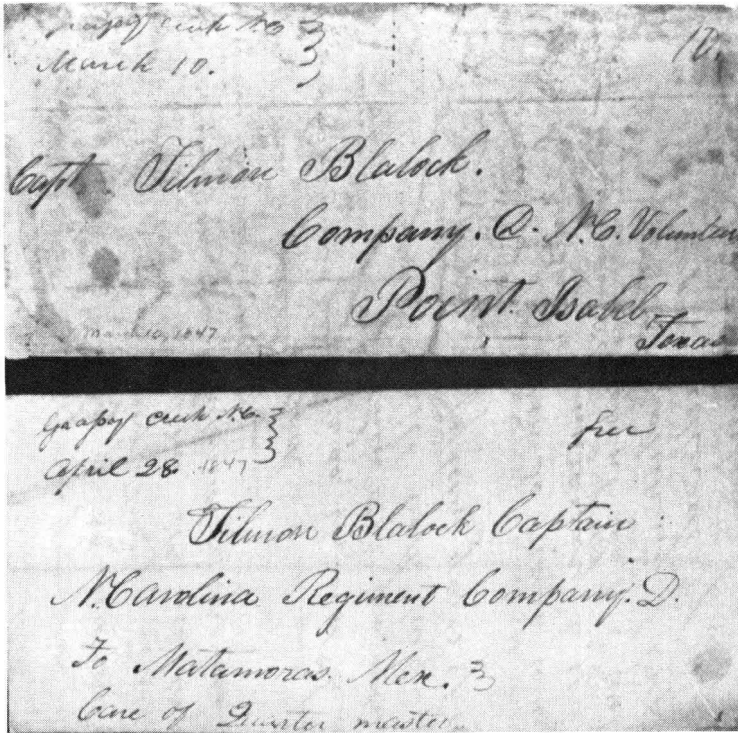 Creek N.C.
March 10.
10.
Capt Tilmon Blalock.
Company. D. N.C. Volunteer
Point. Isabel
Texas
March 10, 1847
Creek N.C.
April 28 1847
free
Tilmon Blalock Captain
N. Carolina Regiment Company. D.
To Matamoras. Mex.
Care of Quarter master